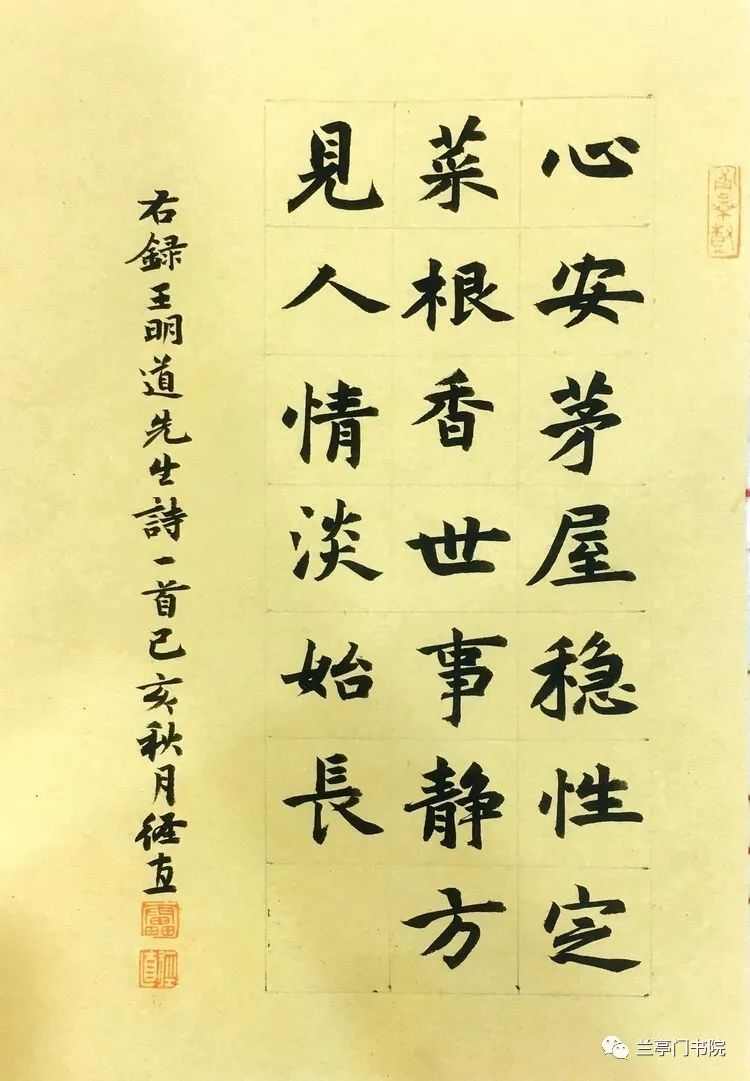 心安茅屋穩性定
菜根香世事静方
見人情淡始長
右録王明道先生詩一首己亥秋月經直
兰亭门书院